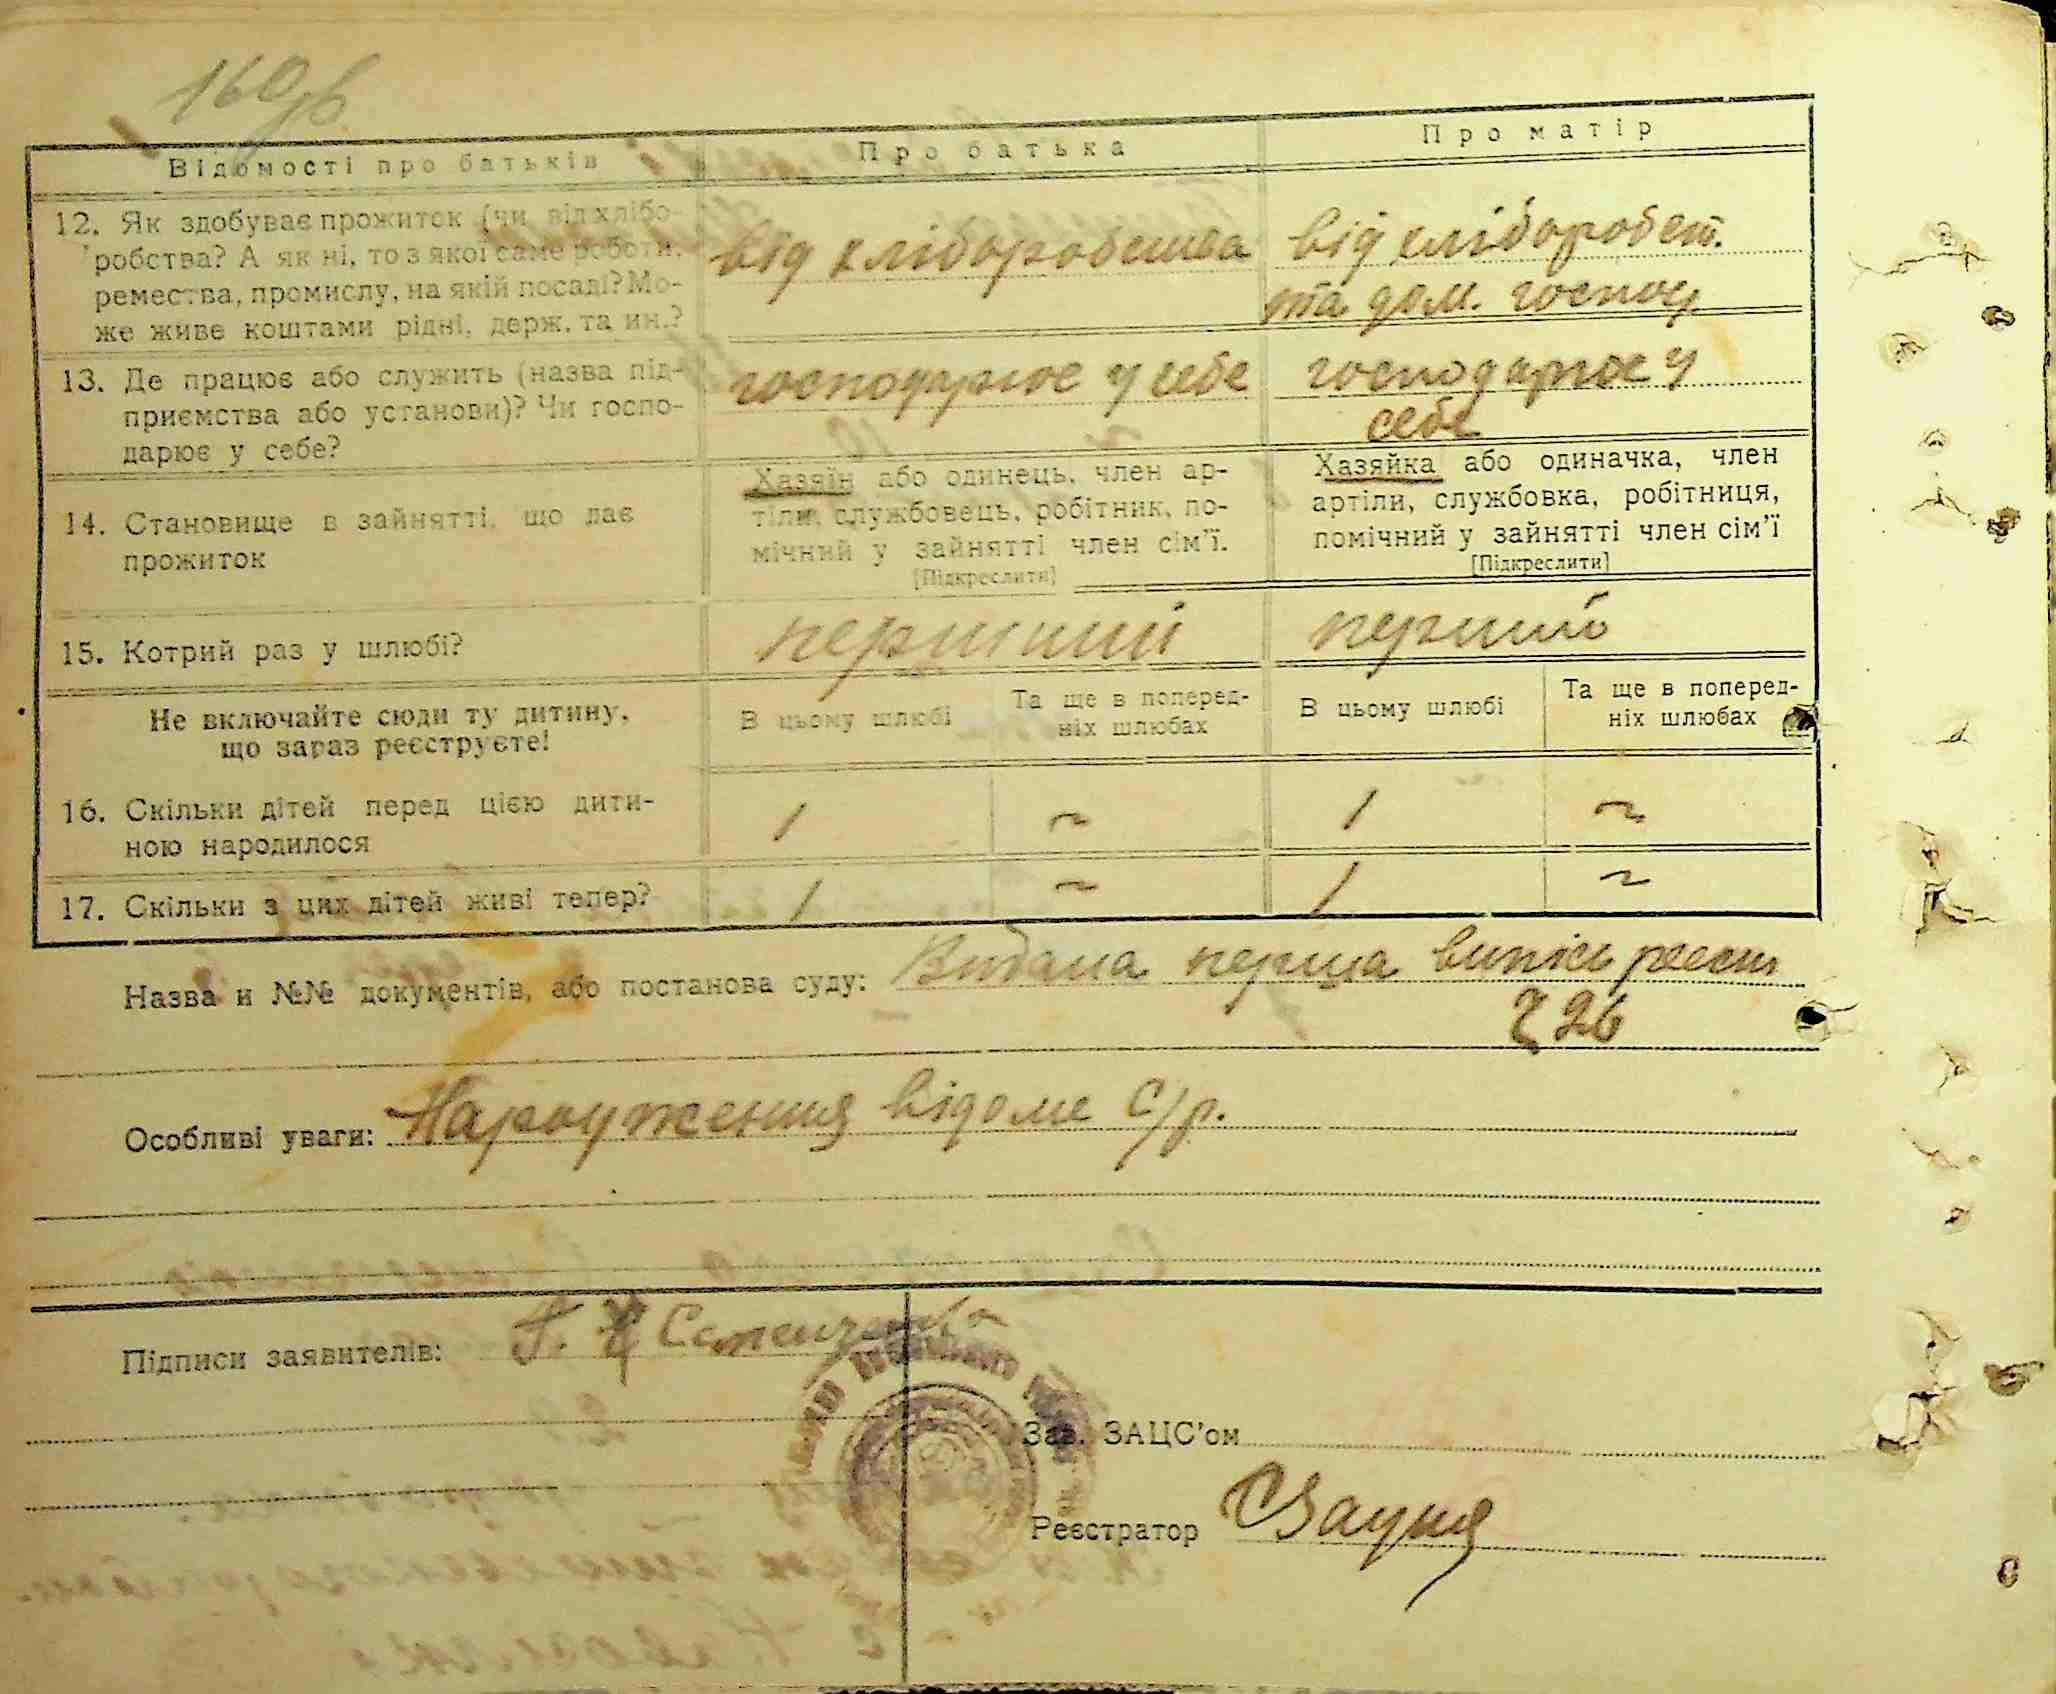 160зв
Відомості про батьків
Про батька
Про матір
12. Як здобуває прожиток (чи від хлібо-
робства? А як ні, то з якої саме роботи,
ремества, промислу, на якій посаді? Мо-
же живе коштами рідні, держ. та ин.?
від хліборобства
від хліборобст.
та дом. господ.
13. Де працює або служить (назва під-
приємства або установи)? Чи госпо-
дарює у себе?
господарює у себе
господарює у
себе
14. Становище в зайнятті, що дає
прожиток
Хазяїн або одинець, член ар-
тіли, службовець, робітник, по-
мічний у зайнятті член сім'ї.
[Підкреслити]
Хазяйка або одиначка, член
артіли, службовка, робітниця,
помічний у зайнятті член сім'ї
[Підкреслити]
15. Котрий раз у шлюбі?
перший
перший
Не включайте сюди ту дитину,
що зараз реєструєте!
В цьому шлюбі
Та ще в поперед-
ніх шлюбах
В цьому шлюбі
Та ще в поперед-
ніх шлюбах
16. Скільки дітей перед цією дити-
ною народилося
1 ~ 1 ~
17. Скільки з цих дітей живі тепер?
1 ~ 1 ~
Назва и №№ документів, або постанова суду: Видана перша випісь реест
Ч 26
Особливі уваги: Народження відоме С/р.
Підписи заявителів:
Зав. ЗАЦС'ом
Реєстратор